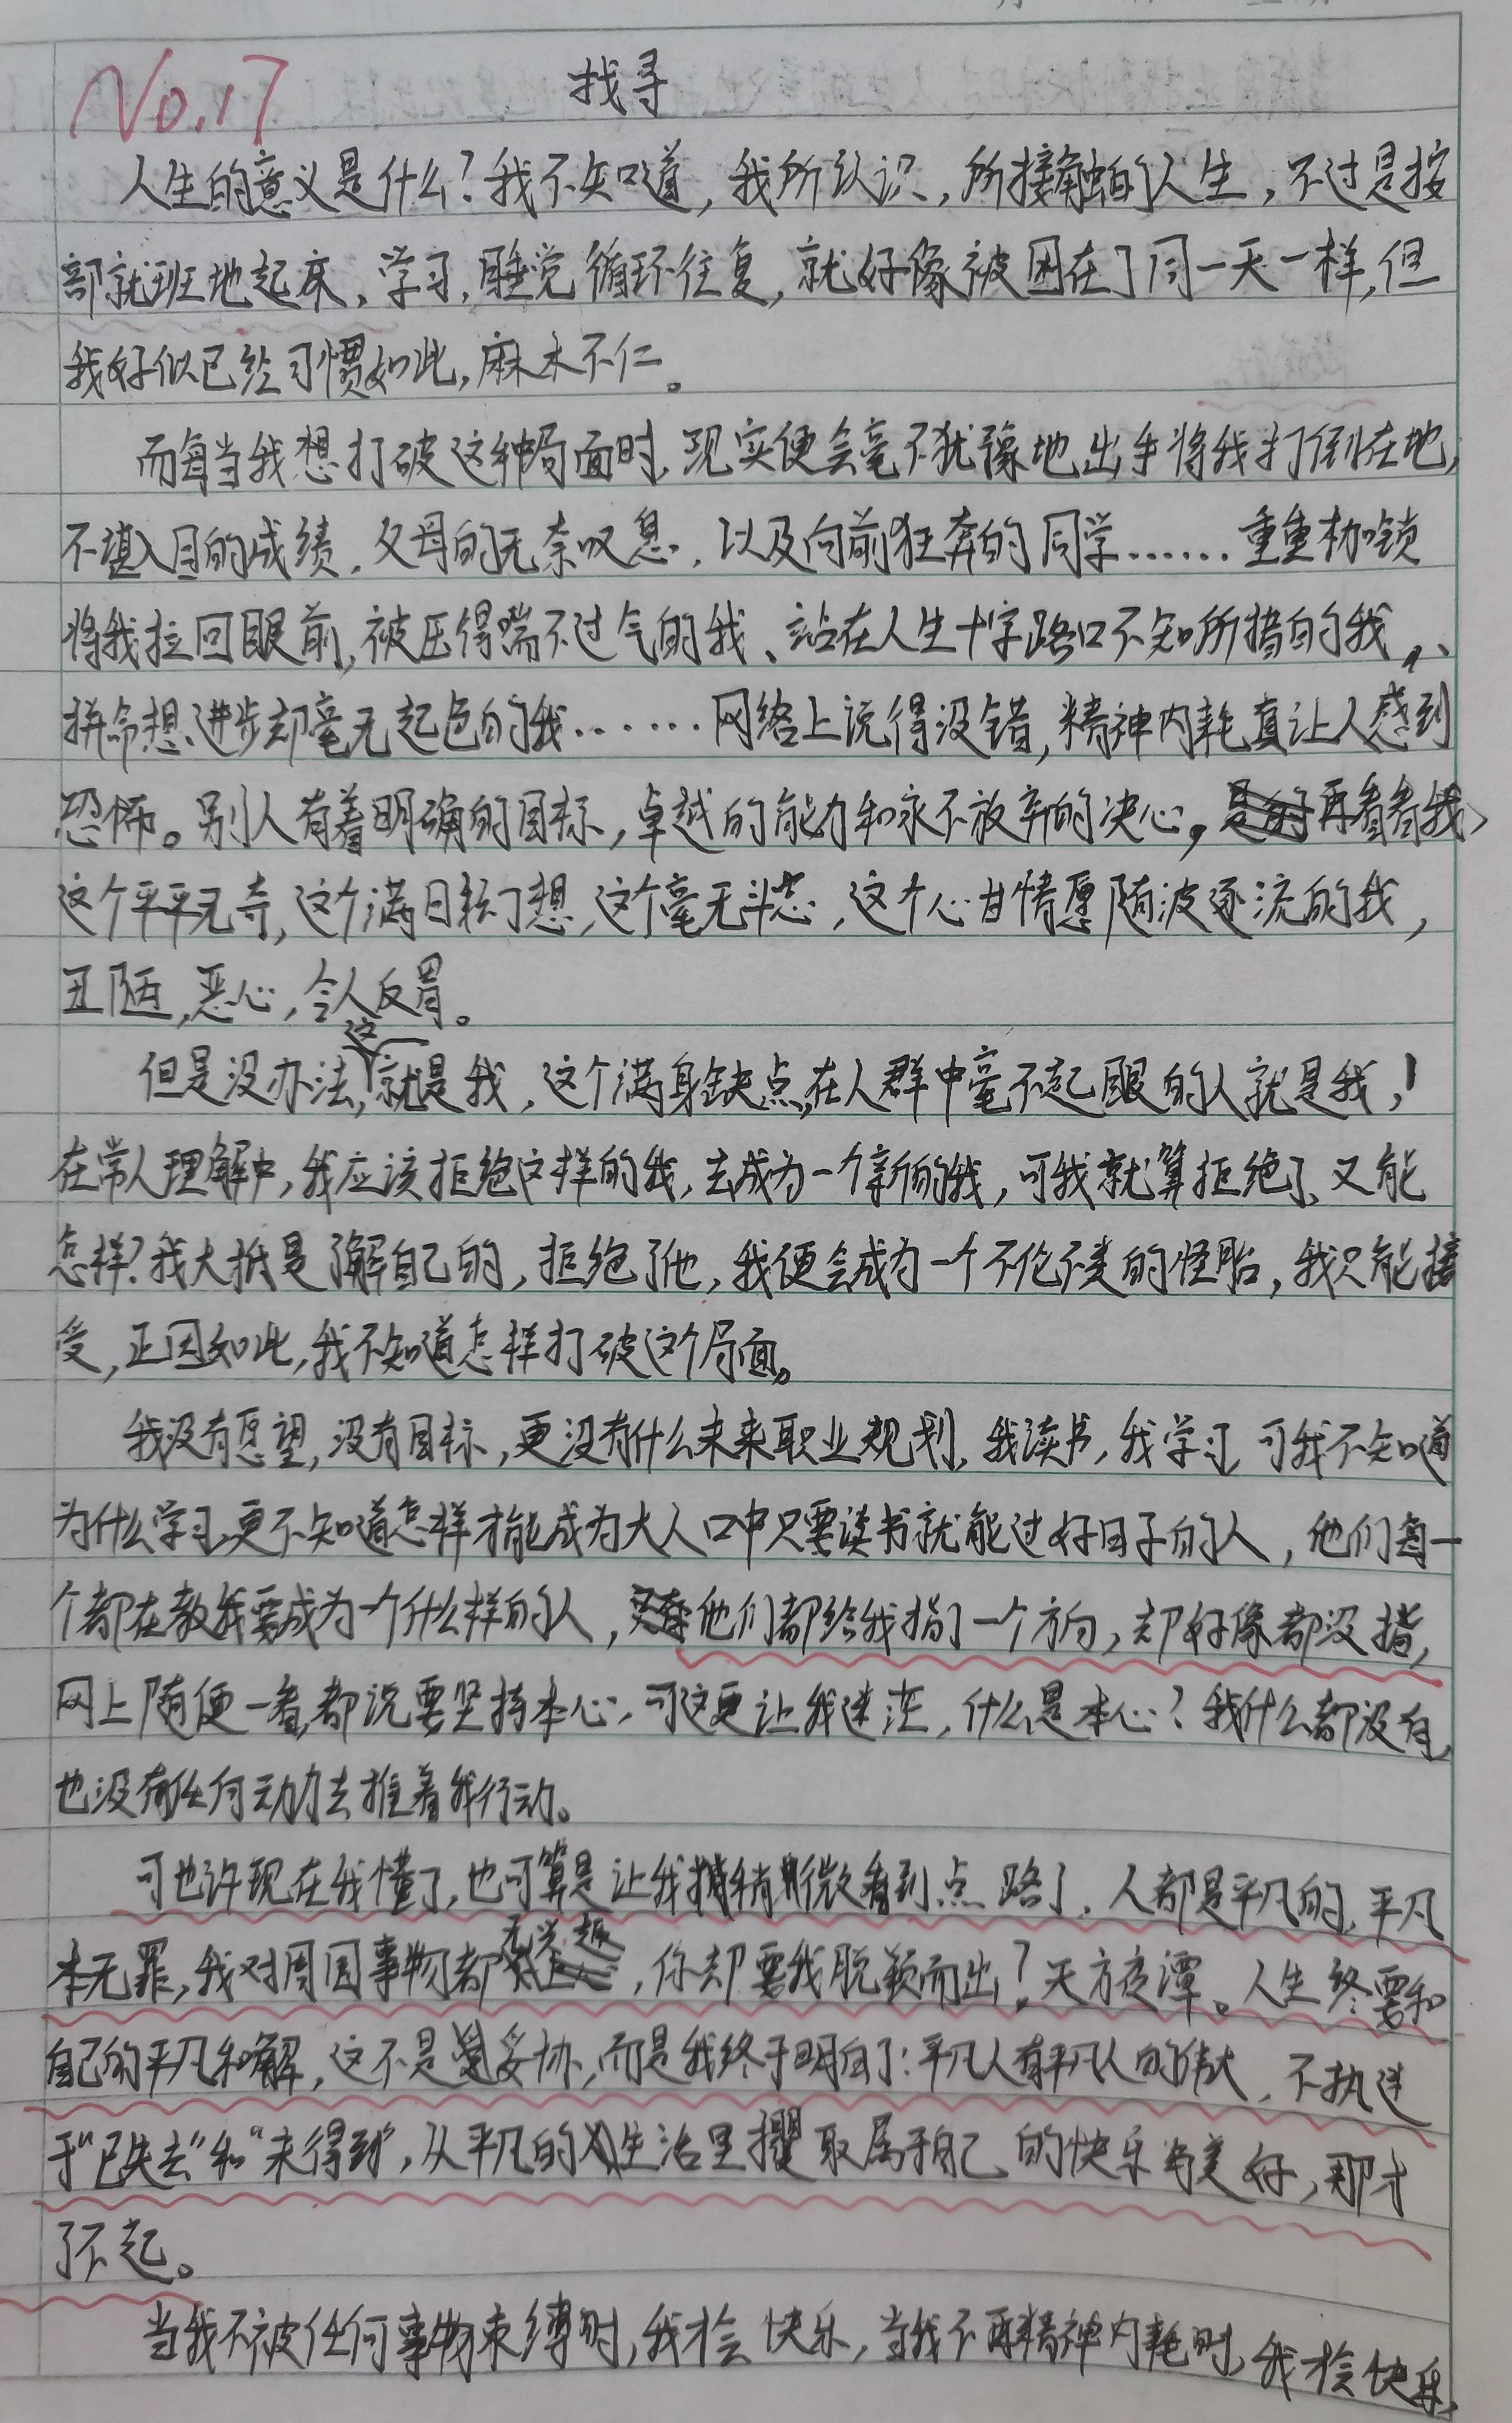 No.17
找寻
人生的意义是什么?我不知道,我所认识,所接触的人生,不过是按
部就班地起床,学习,睡觉循环往复,就好像被困在了同一天一样,但
我好似已经习惯如此,麻木不仁。
而每当我想打破这种局面时,现实便会毫不犹豫地出手将我打倒在地,
不堪入目的成绩,父母的无奈叹息,以及向前狂奔的同学……重重枷锁
将我拉回眼前,被压得喘不过气的我、站在人生十字路口不知所措的我、
拼命想进步却毫无起色的我……网络上说得没错,精神内耗真让人感到
恐怖。别人有着明确的目标,卓越的能力和永不放弃的决心,再看看我,
这个平平无奇,这个满目幻想,这个毫无斗志,这个心甘情愿随波逐流的我,
丑陋,恶心,令人反胃。
但是没办法,这就是我,这个满身缺点,在人群中毫不起眼的人就是我!
在常人理解中,我应该拒绝这样的我,去成为一个新的我,可我就算拒绝了,又能
怎样?我大抵是了解自己的,拒绝了他,我便会成为一个不伦不类的怪胎,我只能接
受,正因如此,我不知道怎样打破这个局面。
我没有愿望,没有目标,更没有什么未来职业规划,我读书,我学习,可我不知道
为什么学习,更不知道怎样才能成为大人口中只要读书就能过好日子的人,他们每一
个都在教我要成为一个什么样的人,他们都给我指了一个方向,却好像都没指,
网上随便一看,都说要坚持本心,可这更让我迷茫,什么是本心?我什么都没有,
也没有任何动力去推着我行动。
可也许现在我懂了,也可算是让我稍微看到点路了,人都是平凡的,平凡
本无罪,我对周围事物都无兴趣,你却要我脱颖而出?天方夜谭。人生终要和
自己的平凡和解,这不是妥协,而是我终于明白了:平凡人有平凡人的伟大,不执迷
于“已失去”和“未得到”,从平凡的生活里攫取属于自己的快乐与美好,那才
了不起。
当我不被任何事物束缚时,我才会快乐,当我不再精神内耗时,我才会快乐,